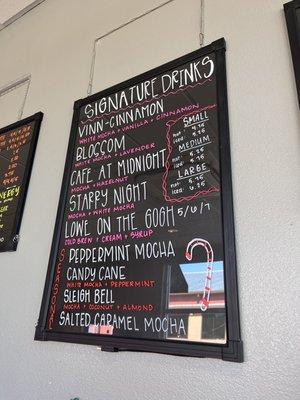 SIGNATURE DRINKS
VINN-CINNAMON
WHITE MOCHA + VANILLA + CINNAMON
BLOÇÇOM
WHITE MOCHA + LAVENDER
CAFE AT MIDNIGHT
MOCHA + HAZELNUT
STARRY NIGHT
MOCHA + WHITE MOCHA
LOWE ON THE GOGH 5/6/7
COLD BREW + CREAM + SYRUP
SMALL
HOT:
ICED:
MEDIUM
HOT:
ICED:
LARGE
HOT: 5.75
ICED: 6.75
SEASONAL
PEPPERMINT MOCHA
CANDY CANE
WHITE MOCHA + PEPPERMINT
SLEIGH BELL
MOCHA + COCONUT + ALMOND
SALTED CARAMEL MOCHA